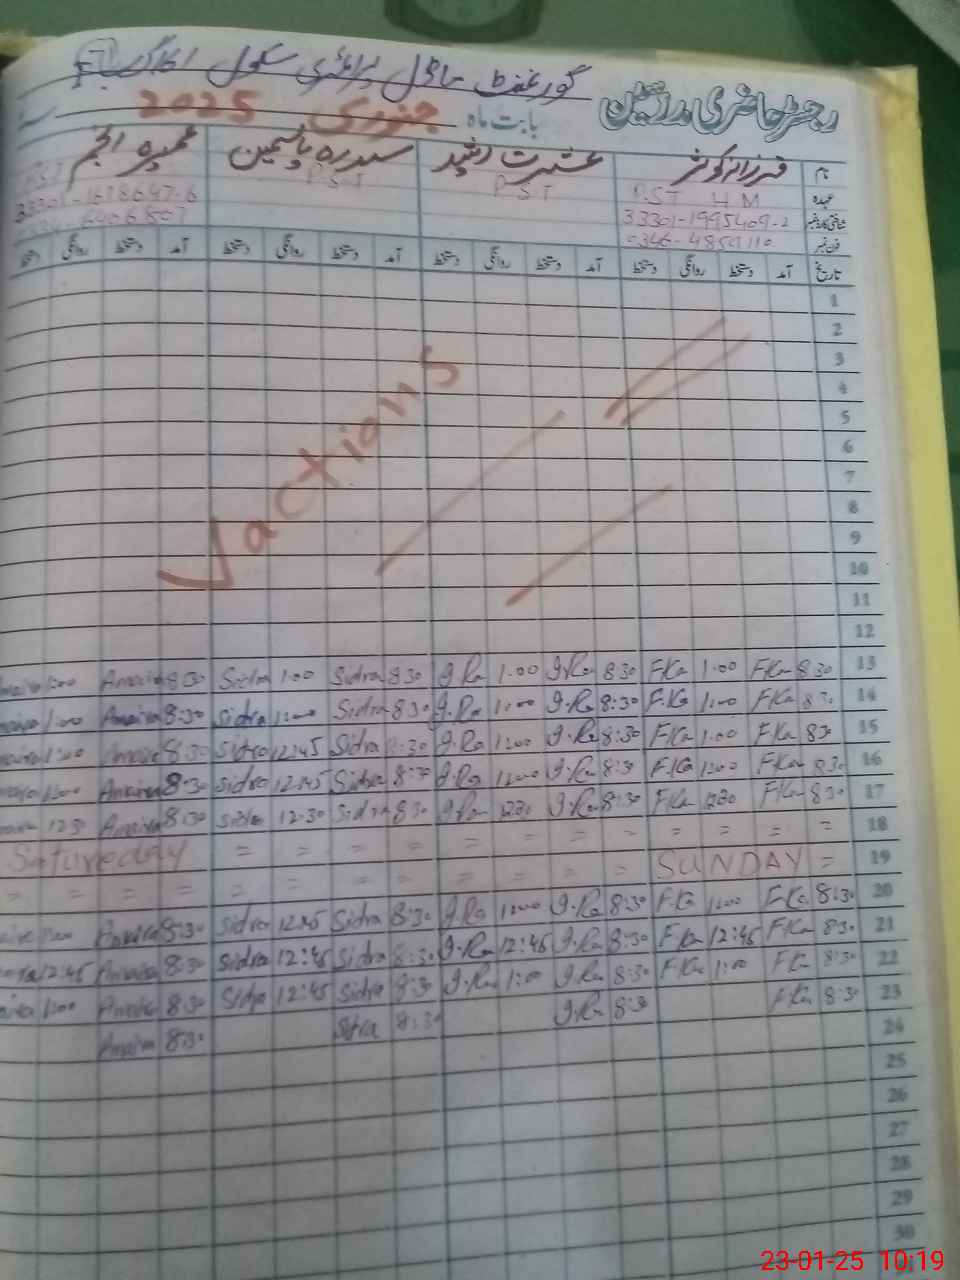 گورنمنٹ ماڈل پرائمری سکول
رجسٹر حاضری مدرسین
بابت ماہ جنوری 2025
نام فرزانہ کوثر عشرت رشید سدرہ یاسمین عمیرہ انجم
عہدہ P.ST H M P.S.T P.S.T P.S.T
شناختی کارڈ نمبر 33301-1995409-2 33301-1678647-6
فون نمبر 0346-4859110
تاریخ آمد دستخط روانگی دستخط آمد دستخط روانگی دستخط آمد دستخط روانگی دستخط آمد دستخط روانگی دستخط
1
2
3
4
5
6
7
8
9
10
11
12
Vactions
13 8:30 F.Ka 1.00 F.Ka 8:30 I.Ra 1.00 I.Ra 8:30 Sidra 1.00 Sidra 8:30 Amaira 1:00
14 8:30 F.Ka 1:00 F.Ka 8:30 I.Ra 1:00 I.Ra 8:30 Sidra 1:00 Sidra 8:30 Amaira 1:00
15 830 F.Ka 1.00 F.Ka 8:30 I.Ra 1:00 I.Ra 8:30 Sidra 12:45 Sidra 8:30 Amaira 1:00
16 8:30 F.Ka 1:00 F.Ka 8:30 I.Ra 1:00 I.Ra 8:30 Sidra 12:45 Sidra 8:30 Amaira 1:00
17 8:30 F.Ka 12:30 F.Ka 8:30 I.Ra 12:30 I.Ra 8:30 Sidra 12:30 Sidra 8:30 Amaira 12:30
18 = = = = = = = = = = = = Satureday
19 = SUNDAY = = = = = = = = = = = =
20 8:30 F.Ka 1:00 F.Ka 8:30 I.Ra 1:00 I.Ra 8:30 Sidra 12:45 Sidra 8:30 Amaira
21 8:30 F.Ka 12:45 F.Ka 8:30 I.Ra 12:45 I.Ra 8:30 Sidra 12:45 Sidra 8:30 Amaira 12:45
22 8:30 F.Ka 1:00 F.Ka 8:30 I.Ra 1:00 I.Ra 8:30 Sidra 12:45 Sidra 8:30 Amaira 1:00
23 8:30 F.Ka 8:30 I.Ra 8:30 Sidra 8:30 Amaira
24
25
26
27
28
29
30
31
23-01-25 10:19